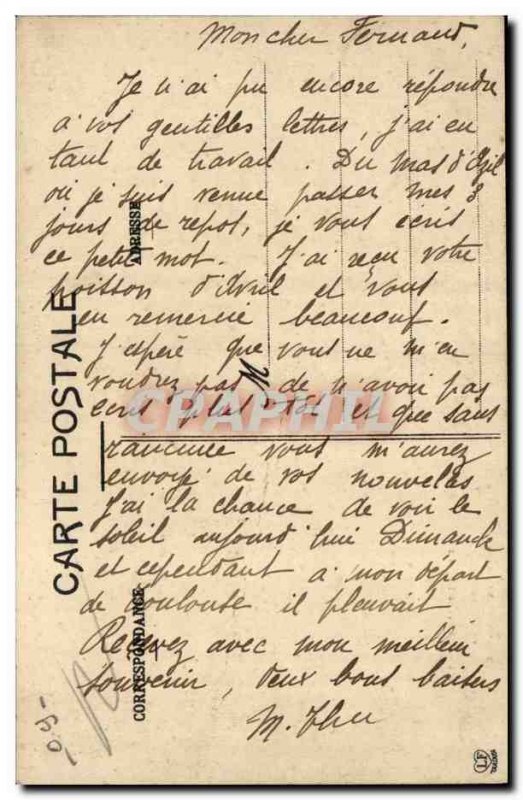 Mon cher Fernand,
Je n'ai pu encore répondre
à vos gentilles lettres, j'ai eu
tant de travail. Du Mas d'Azil
où je suis venue passer mes 8
jours de repos, je vous écris
ce petit mot. J'ai reçu votre
poisson d'Avril et vous
en remercie beaucoup.
J'espère que vous ne m'en
voudrez pas de n'avoir pas
écrit plus tôt et que sans
rancune vous m'aurez
envoyé de vos nouvelles
J'ai la chance de voir le
soleil aujourd'hui Dimanche
et cependant à mon départ
de Toulouse il pleuvait
Recevez avec mon meilleur
souvenir, deux bons baisers
CARTE POSTALE
ADRESSE
CORRESPONDANCE
CPAPHIL
LF